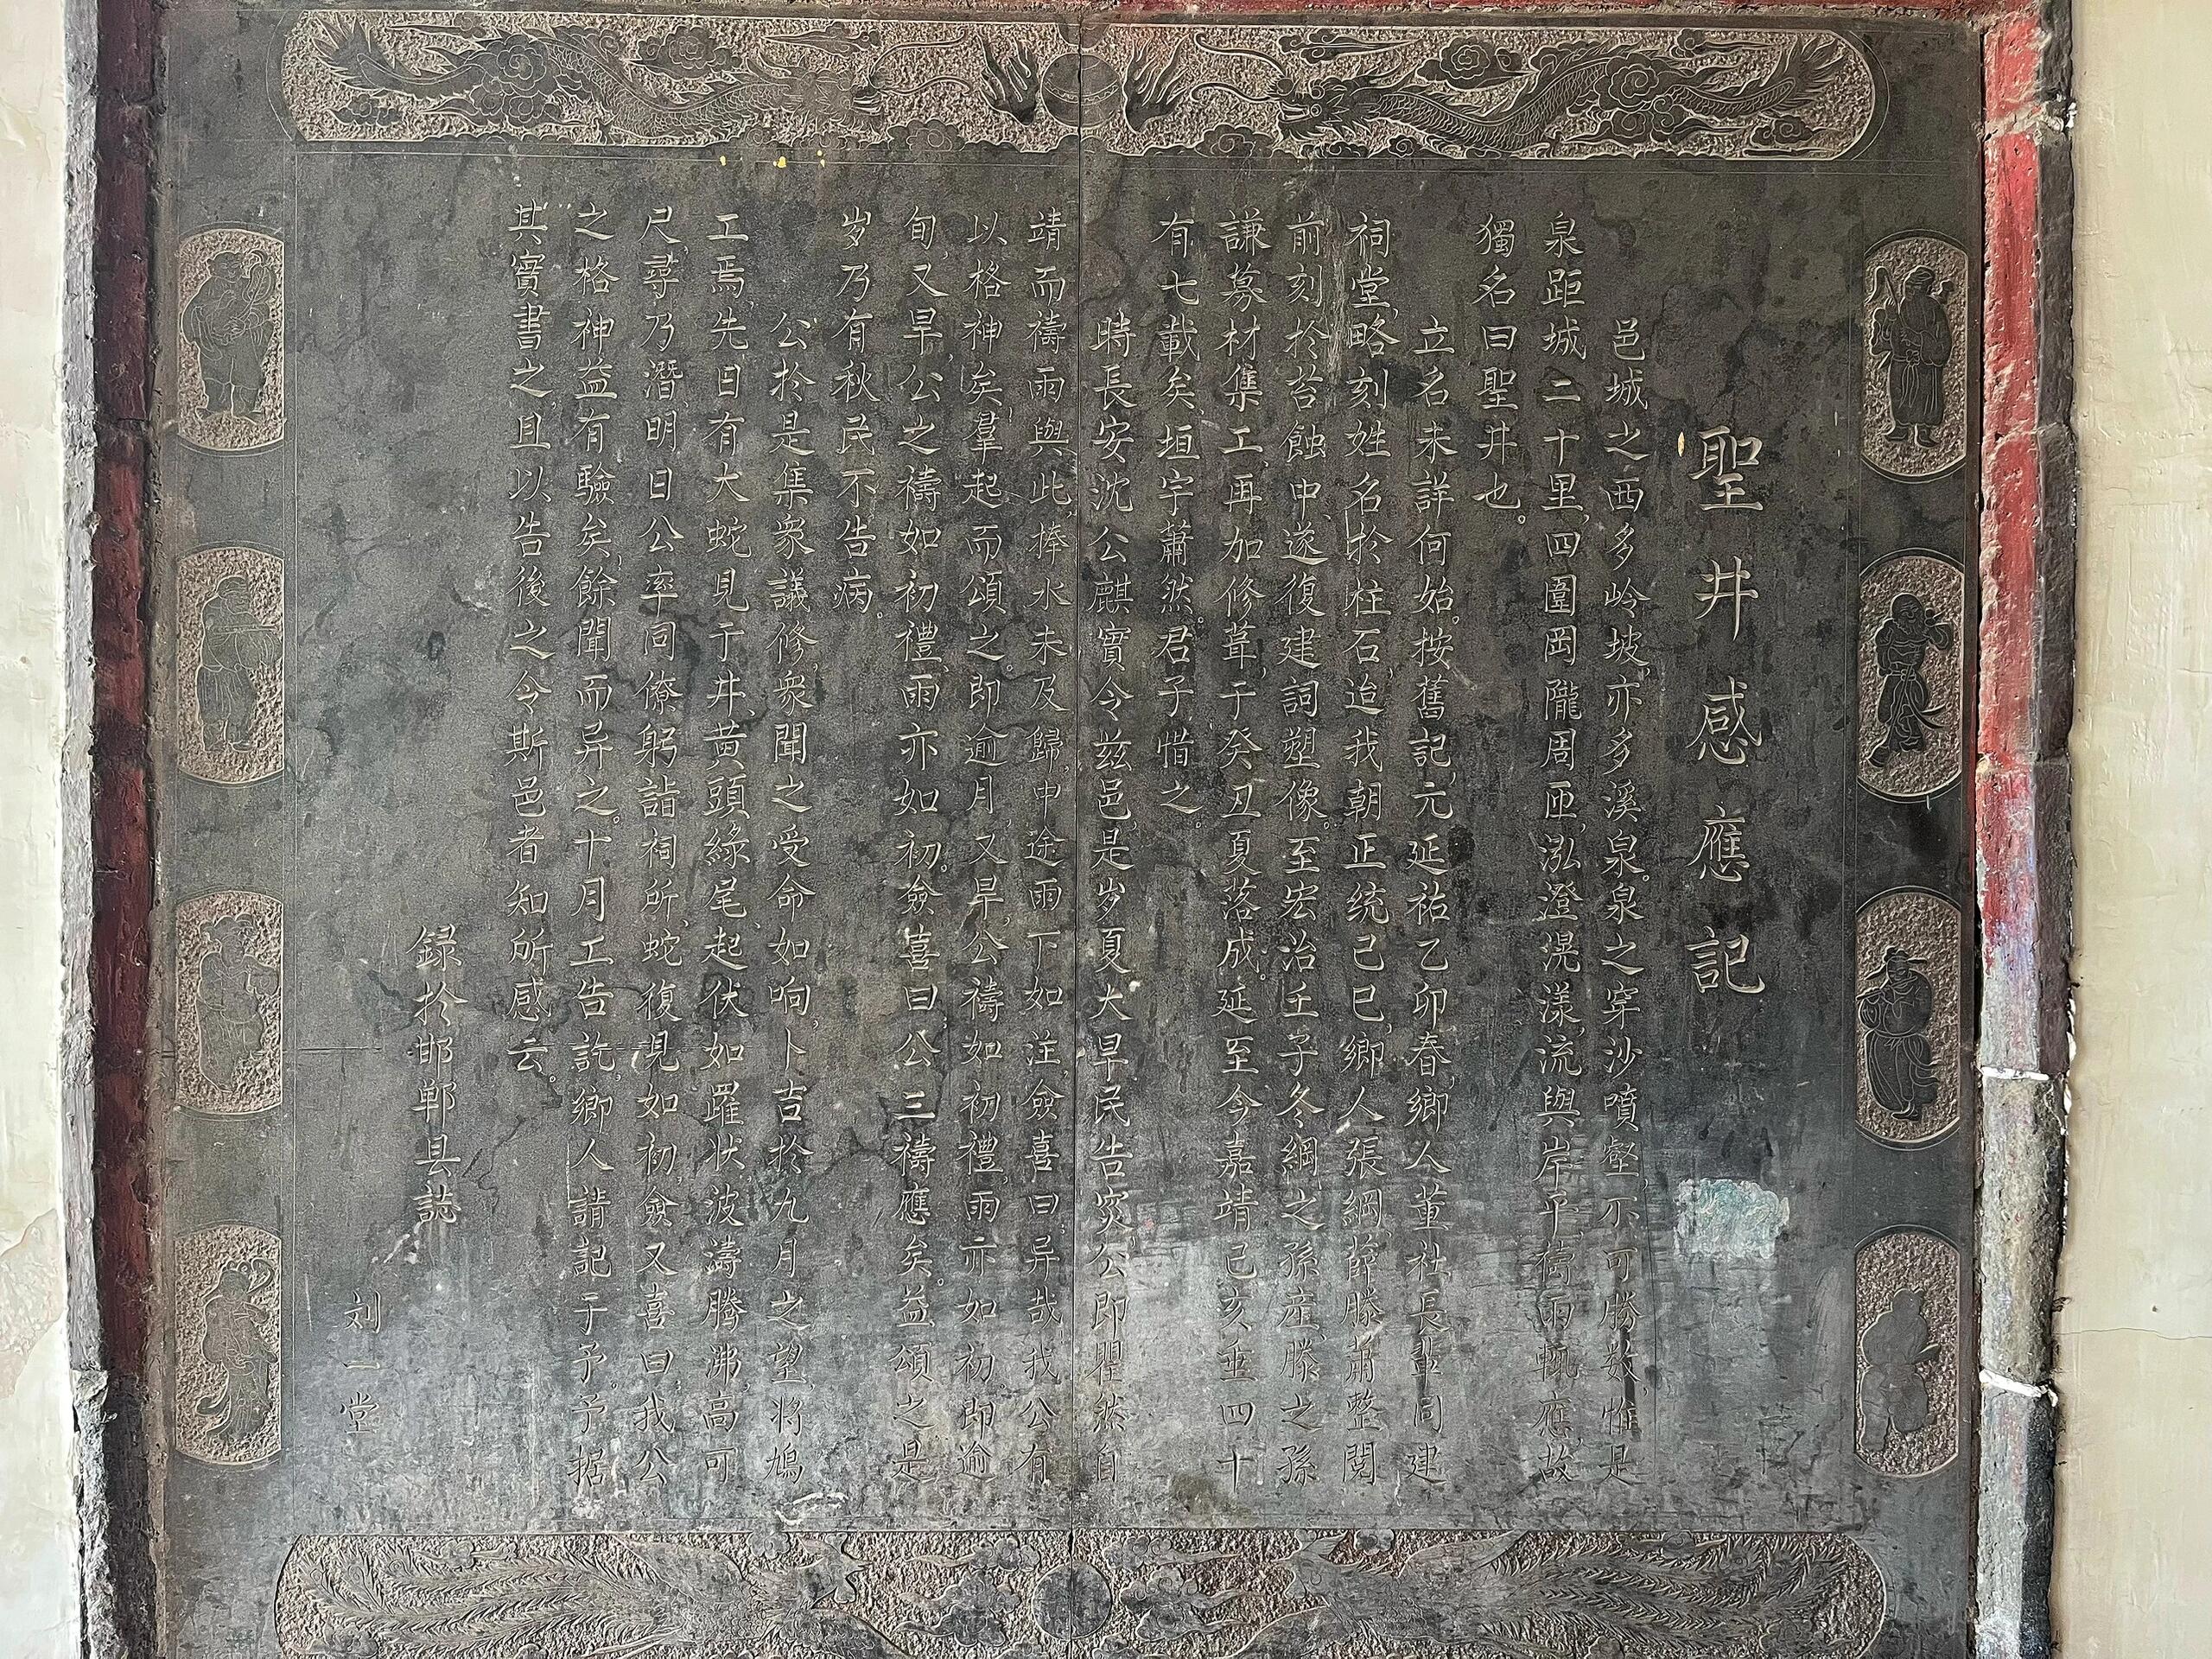 聖井感應記
邑城之西多岭坡，亦多溪泉。泉之穿沙噴壑，不可勝数，惟是
泉距城二十里，四圍岡隴周匝，泓澄滉漾，流與岸平，禱雨輒應，故
獨名曰聖井也。
立名未詳何始。按舊記，元延祐乙卯春，鄉人董社長輩同建
祠堂，略刻姓名於柱石，迨我朝正统己巳，鄉人張綱、薛滕、蕭整閱
前刻於苔蝕中，遂復建詞塑像。至宏治壬子冬，綱之孫産、滕之孫
謙募材集工，再加修葺，于癸丑夏落成。延至今嘉靖己亥，垂四十
有七載矣，垣宇蕭然。君子惜之。
時長安沈公麒實令兹邑，是岁夏大旱，民告災，公即瞿然自
靖而禱雨與此，捧水未及歸，中途雨下如注，僉喜曰：异哉，我公有
以格神矣，羣起而頌之。即逾月，又旱，公禱如初禮，雨亦如初，即逾
旬，又旱，公之禱如初禮，雨亦如初。僉喜曰：公三禱應矣。益頌之，是
岁乃有秋，民不告病。
公於是集衆議修，衆聞之受命如响，卜吉於九月之望，将鳩
工焉，先日有大蛇見于井，黄頭綠尾，起伏如躍状，波濤腾沸，高可
尺，尋乃潛，明日公率同僚躬詣祠所，蛇復見如初，僉又喜曰：我公
之格神益有驗矣，餘聞而异之。十月工告訖，鄉人請記于予。予据
其實書之，且以告後之令斯邑者知所感云。
録於邯郸县誌
刘一堂